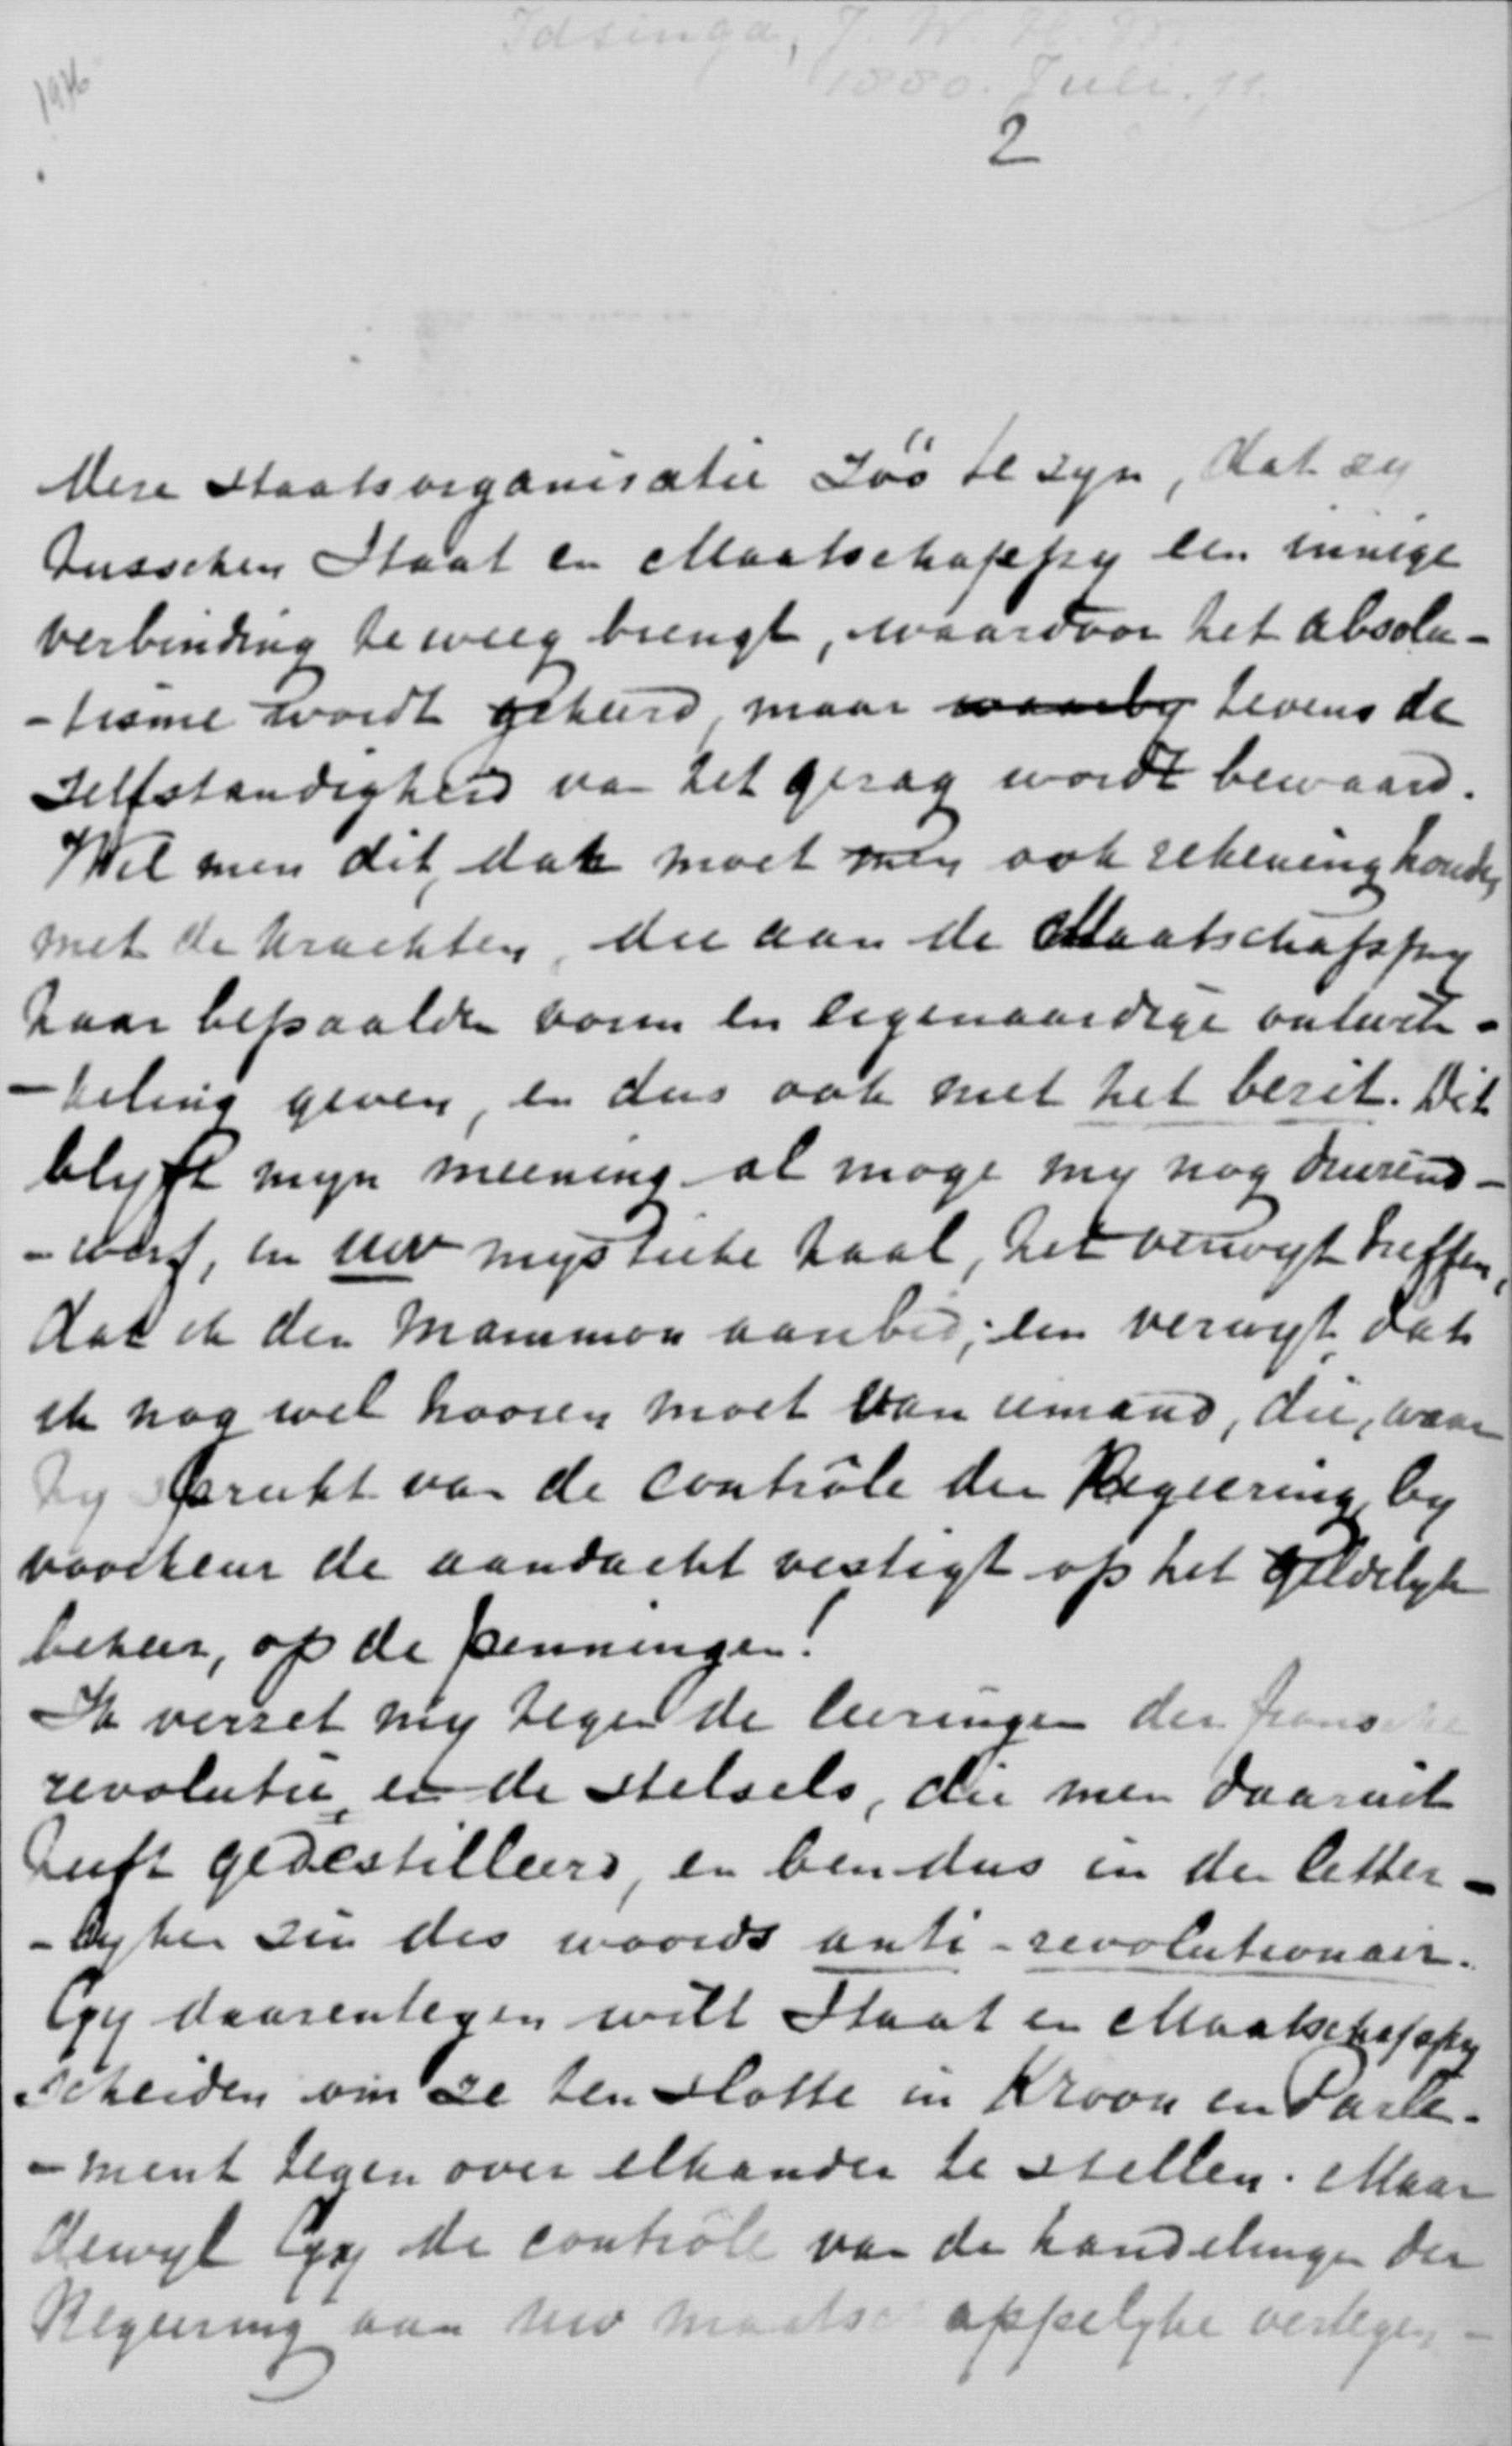 Idsinga, J. W. H. M.
1880. Juli. 11.
1946
2
dere staatsorganisatie zóó te zyn, dat zy
tusschen Staat en Maatschappy een innige
verbinding te weeg brengt, waardoor het absolu-
-tisme wordt gekeerd, maar waarby tevens de
zelfstandigheid van het gezag wordt bewaard.
Wil men dit, dan moet men ook rekening houden
met de krachten, die aan de Maatschappy
haar bepaalden vorm en eigenaardige ontwik-
-keling geven, en dus ook met het bezit. Dit
blyft myn meening al moge my nog duizend-
-werf, in uw mystieke taal, het verwyt treffen,
dat ik den Mammon aanbid; een verwyt, dat
ik nog wel hooren moet van iemand, die, waar
hy spreekt van de contrôle der Regeering, by
voorkeur de aandacht vestigt op het geldelyk
beheer, op de penningen!
Ik verzet my tegen de leeringen der fransche
revolutie, en de stelsels, die men daaruit
heeft gedestilleerd, en ben dus in den letter-
-lyken zin des woords anti-revolutionair.
Gy daarentegen wilt Staat en Maatschappy
scheiden om ze ten slotte in Kroon en Parle-
-ment tegen over elkander te stellen. Maar
dewyl Gy de contrôle van de handelingen der
Regeering aan uw maatschappelyke vertegen-